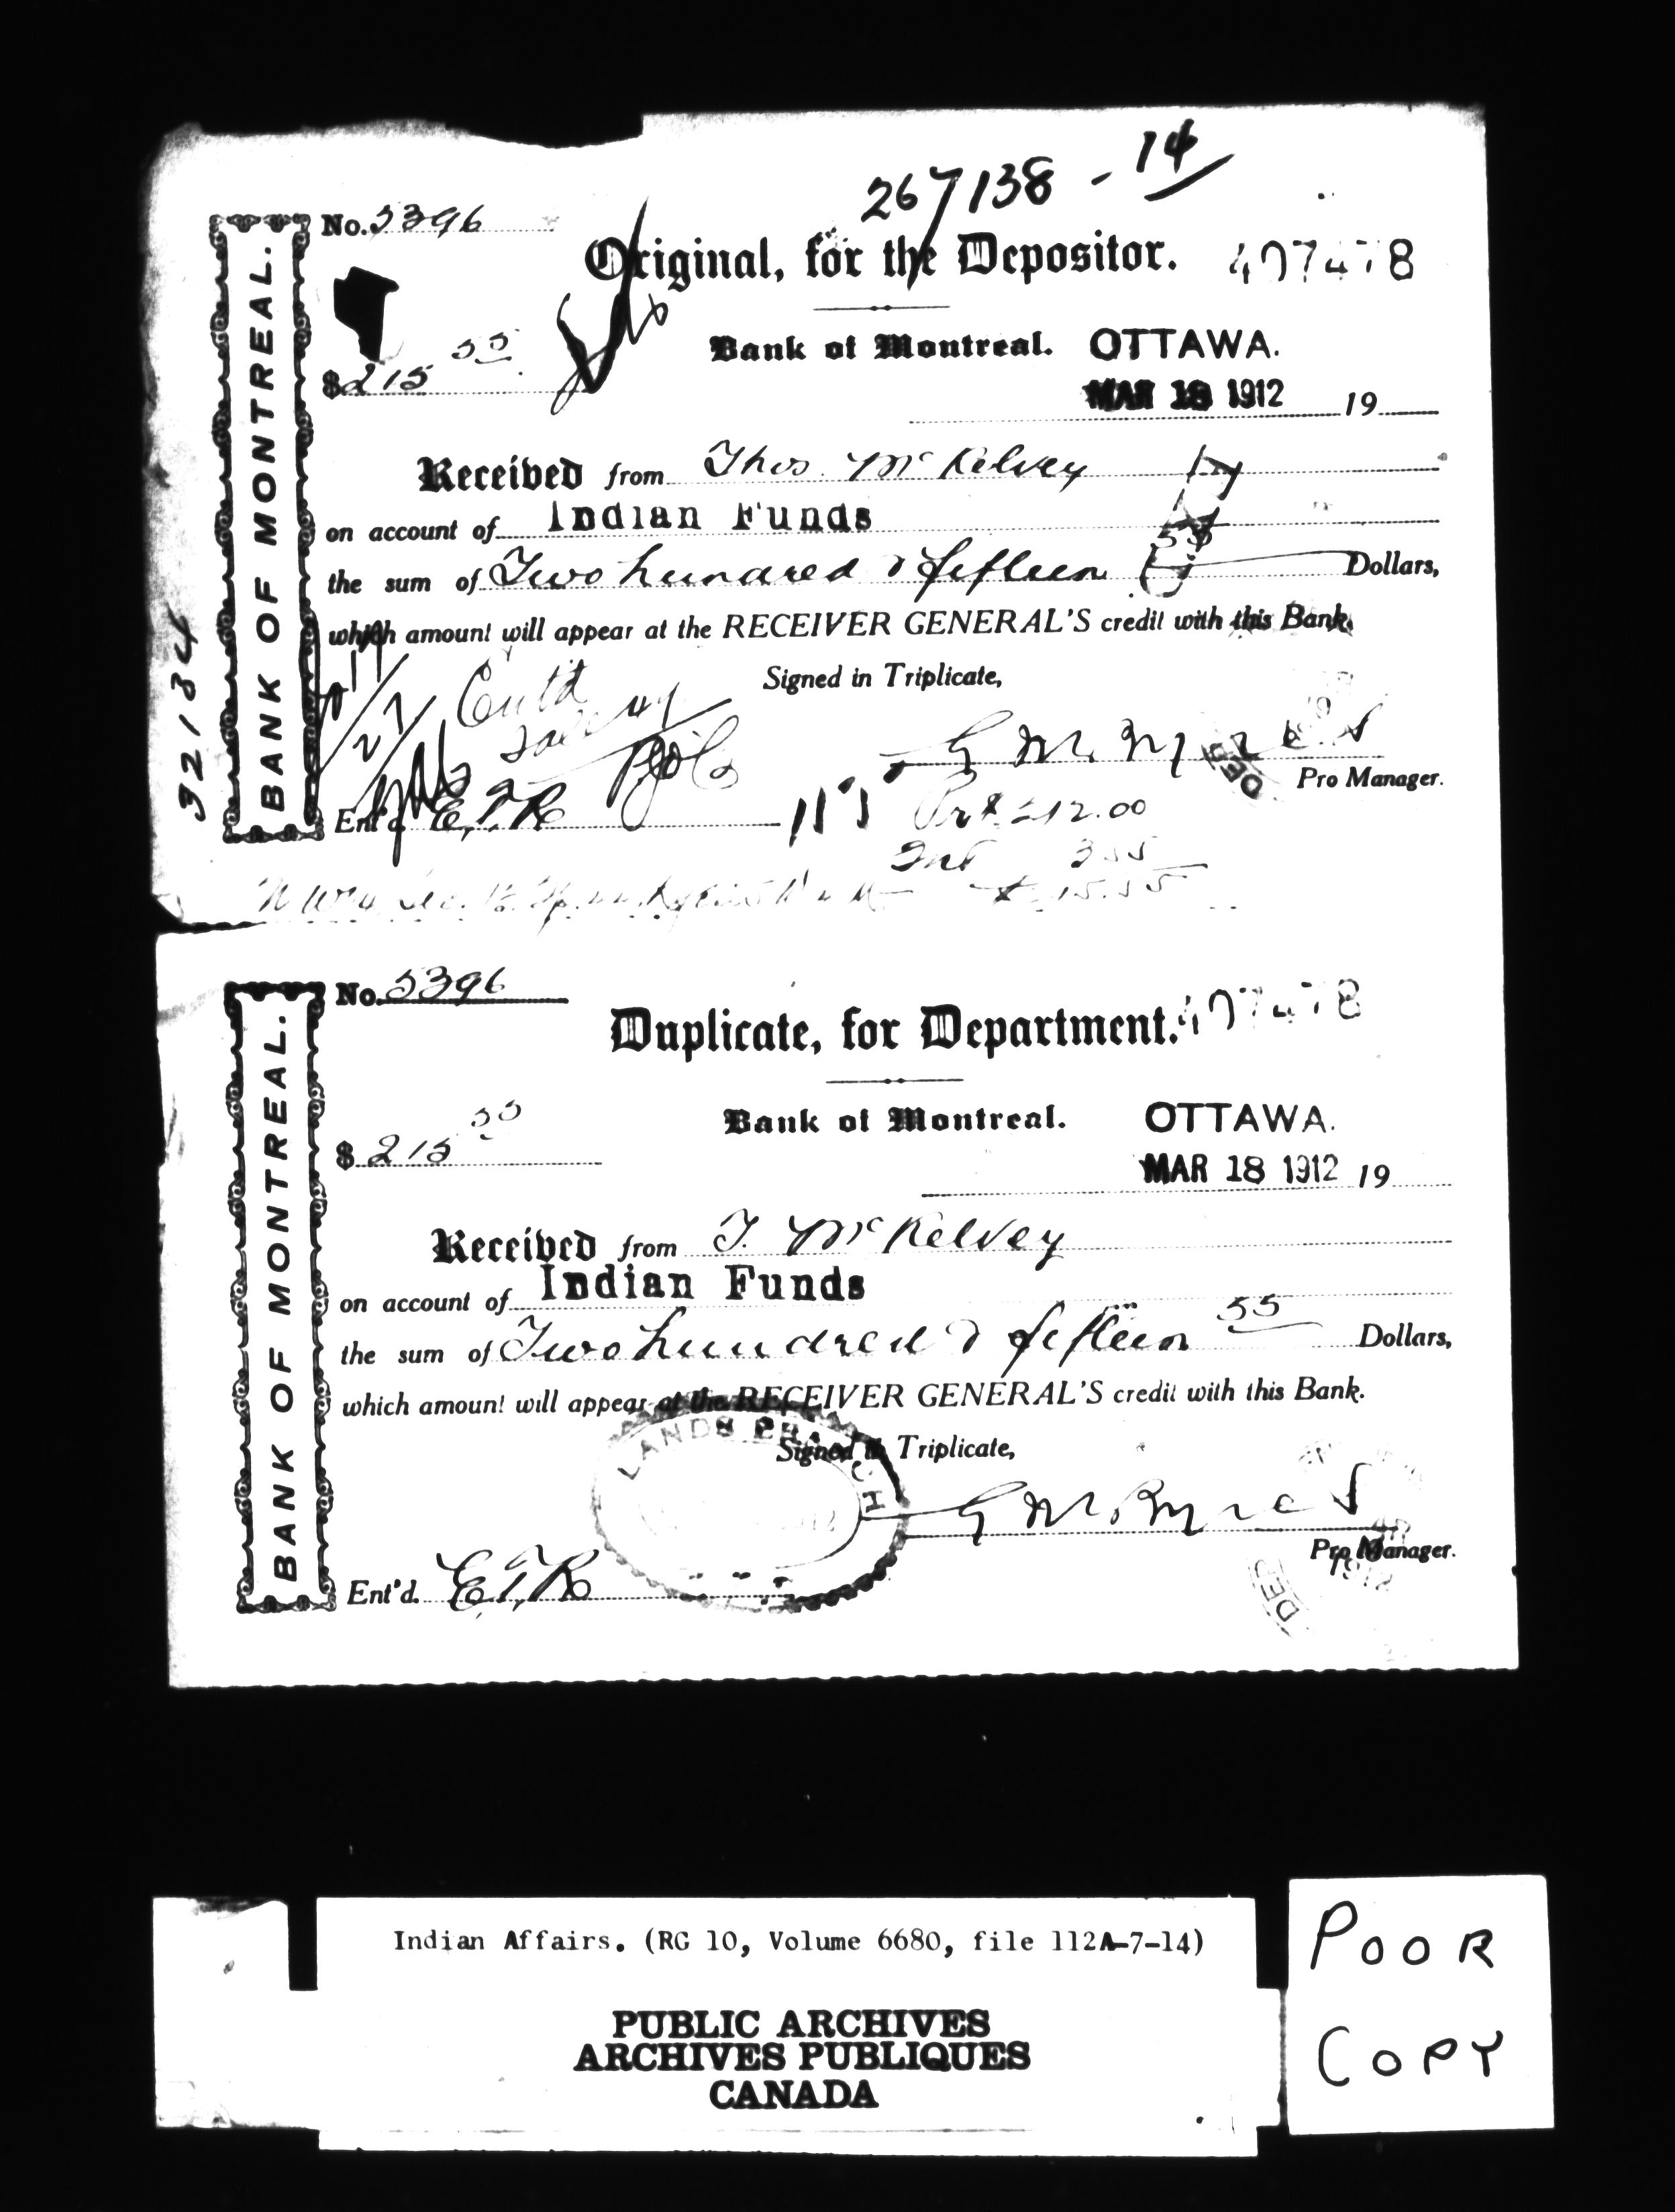 267138 - 14
No. 5396
Original, for the Depositor. 407478
$215 55
Bank of Montreal. OTTAWA.
MAR 18 1912 19
Received from Thos. McKelvey
on account of Indian Funds
the sum of Two hundred & fifteen 55 Dollars,
which amount will appear at the RECEIVER GENERAL'S credit with this Bank.
Signed in Triplicate,
G M. Byrnes
Pro Manager.
Ent'd. E.T.R.
212.00
Int 3.55
215.55
32184
BANK OF MONTREAL.
No. 5396
Duplicate, for Department. 407478
$215 55
Bank of Montreal. OTTAWA.
MAR 18 1912 19
Received from T. McKelvey
on account of Indian Funds
the sum of Two hundred & fifteen 55 Dollars,
which amount will appear at the RECEIVER GENERAL'S credit with this Bank.
Signed in Triplicate,
LANDS BRANCH
Pro Manager.
Ent'd. E.T.R.
BANK OF MONTREAL.
Indian Affairs. (RG 10, Volume 6680, file 112A-7-14)
PUBLIC ARCHIVES
ARCHIVES PUBLIQUES
CANADA
POOR
COPY